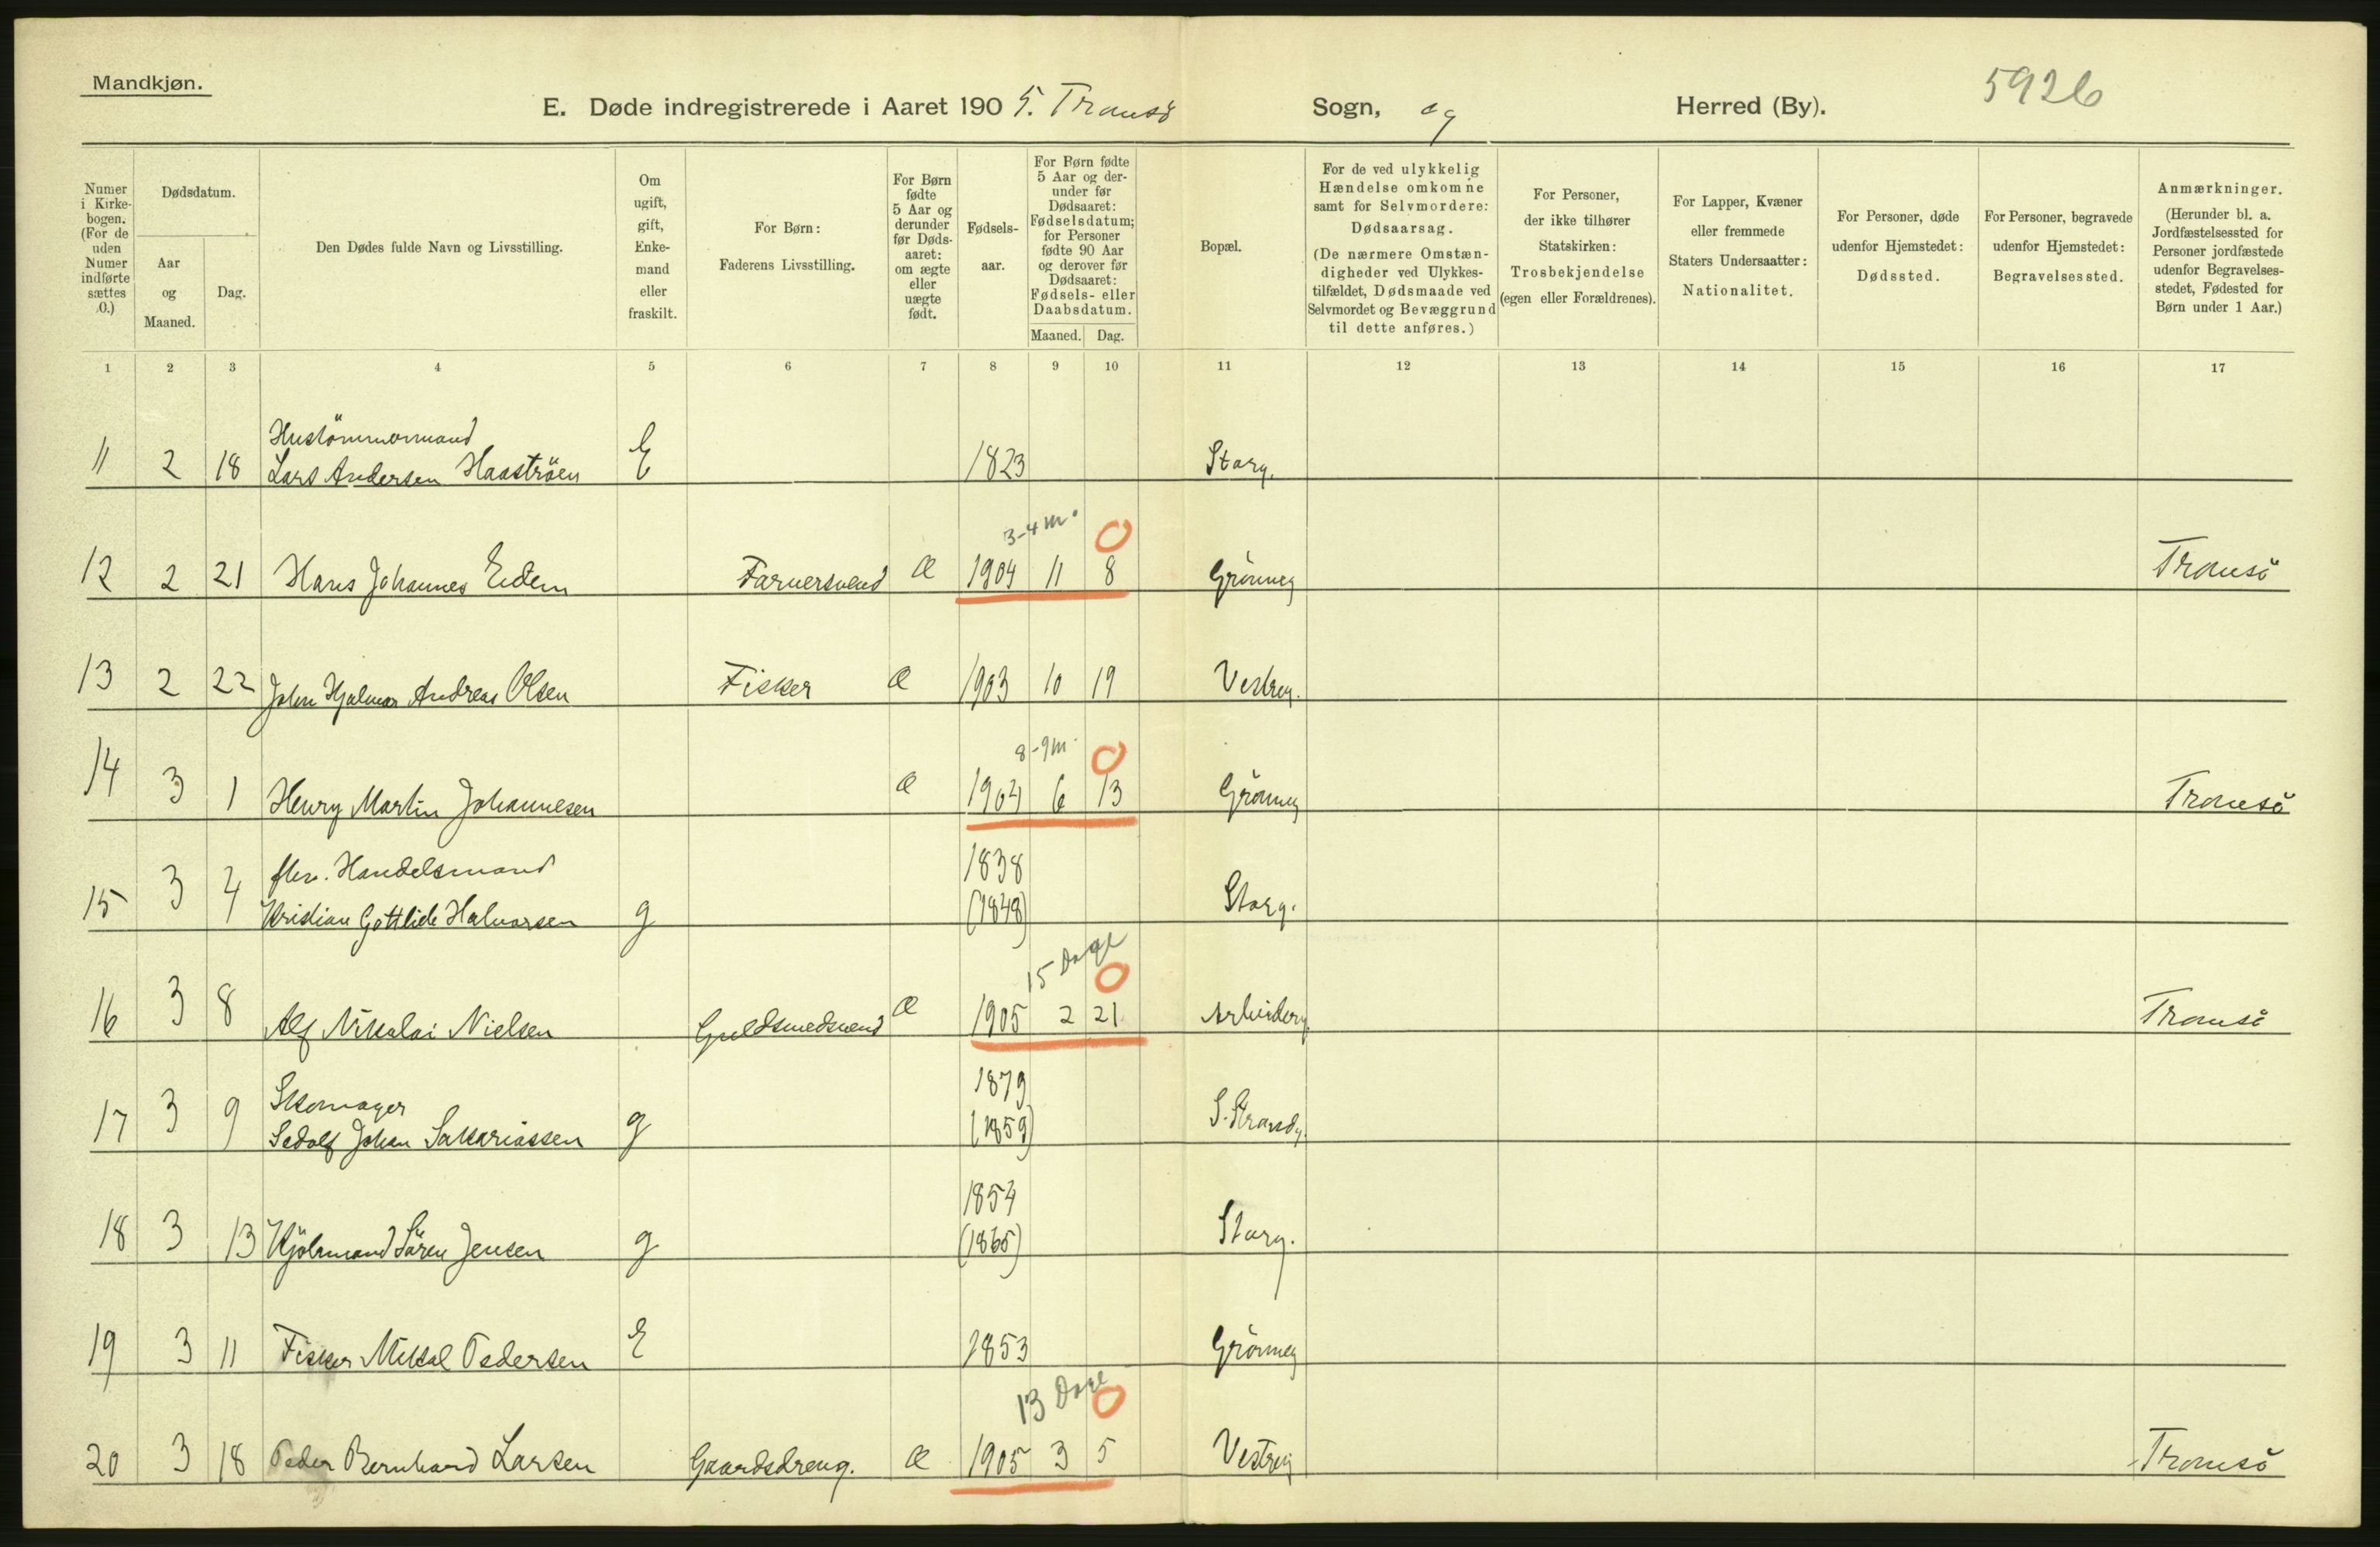 Mandkjøn.
5926
E. Døde indregistrerede i Aaret 1905. Tromsö Sogn, og Herred (By).
Numer i Kirke-bogen. (For de uden Numer indførte sættes 0.)
Dødsdatum.
Aar og Maaned.
Dag.
Den Dødes fulde Navn og Livsstilling.
Om ugift, gift, Enke-mand eller fraskilt.
For Børn: Faderens Livsstilling.
For Børn fødte 5 Aar og derunder før Døds-aaret: om ægte eller uægte født.
Fødsels-aar.
For Børn fødte 5 Aar og der-under før Dødsaaret: Fødselsdatum; for Personer fødte 90 Aar og derover før Dødsaaret: Fødsels- eller Daabsdatum.
Maaned. Dag.
Bopæl.
For de ved ulykkelig Hændelse omkomne samt for Selvmordere: Dødsaarsag. (De nærmere Omstæn-digheder ved Ulykkes-tilfældet, Dødsmaade ved Selvmordet og Bevæggrund til dette anføres.)
For Personer, der ikke tilhører Statskirken: Trosbekjendelse (egen eller Forældrenes).
For Lapper, Kvæner eller fremmede Staters Undersaatter: Nationalitet.
For Personer, døde udenfor Hjemstedet: Dødssted.
For Personer, begravede udenfor Hjemstedet: Begravelsessted.
Anmærkninger. (Herunder bl. a. Jordfæstelsessted for Personer jordfæstede udenfor Begravelses-stedet, Fødested for Børn under 1 Aar.)
1 2 3 4 5 6 7 8 9 10 11 12 13 14 15 16 17
Hustömmermand
11 2 18 Lars Andersen Haaströen E 1823 Storg.
3-4 m. 0
12 2 21 Hans Johannes Eidem Farversvend Æ 1904 11 8 Grönneg Tromsö
13 2 22 John Hjalmar Andreas Olsen Fisker Æ 1903 10 19 Vestreg.
8-9 m. 0
14 3 1 Henry Martin Johannesen Æ 1904 6 13 Grönneg Tromsö
fhv. Handelsmand 1838
15 3 4 Kristian Gottlieb Halvorsen g (1848) Storg.
15 Dage 0
16 3 8 Alf Nikolai Nielsen Guldsmedsvend Æ 1905 2 21 Arbeiderg Tromsö
Skomager 1879
17 3 9 Sedolf Johan Sakariassen g (1859) S. Strandg.
1854
18 3 13 Kjölmand Sören Jensen g (1865) Storg.
19 3 11 Fisker Mikal Pedersen E 1853 Grönneg
13 Dage 0
20 3 18 Peder Bernhard Larsen Gaardsdreng. Æ 1905 3 5 Vestreg Tromsö